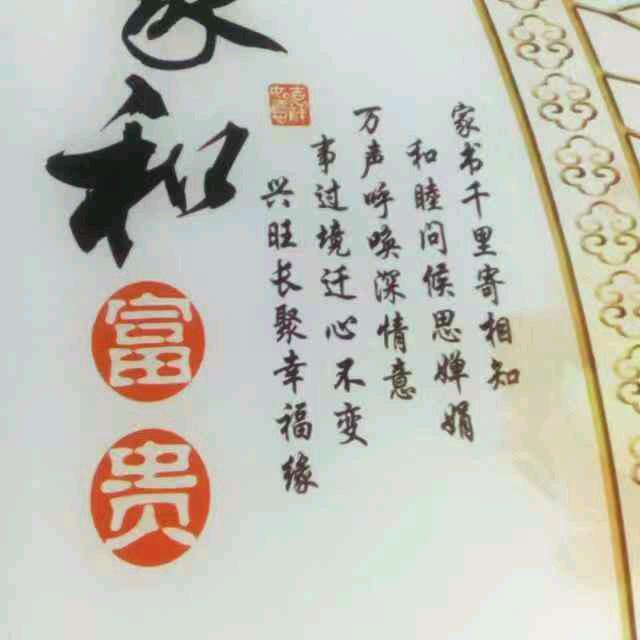 家书千里寄相知
和睦问候思婵娟
万声呼唤深情意
事过境迁心不变
兴旺长聚幸福缘
家和
富贵